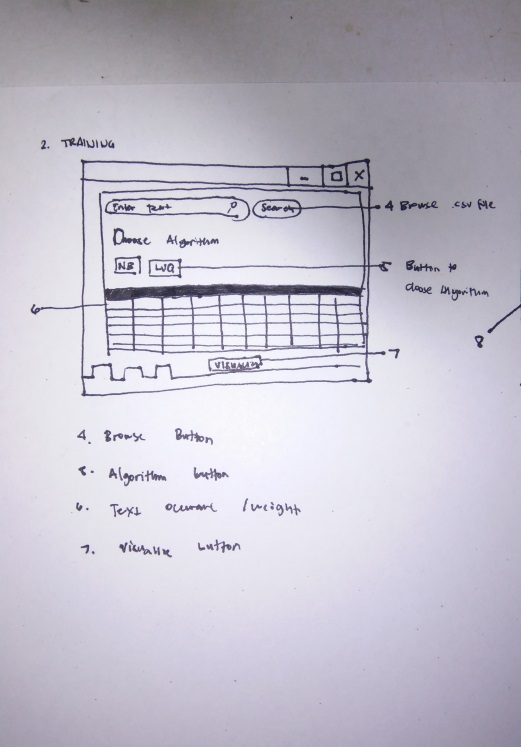 2. TRAINING
Enter text
Search
4 Browse .csv file
Choose Algorithm
NB
LVQ
5 Button to
choose Algorithm
6
8
7
VISUALIZE
4. Browse Button
5. Algorithm button
6. Text /weight
7. Visualize button